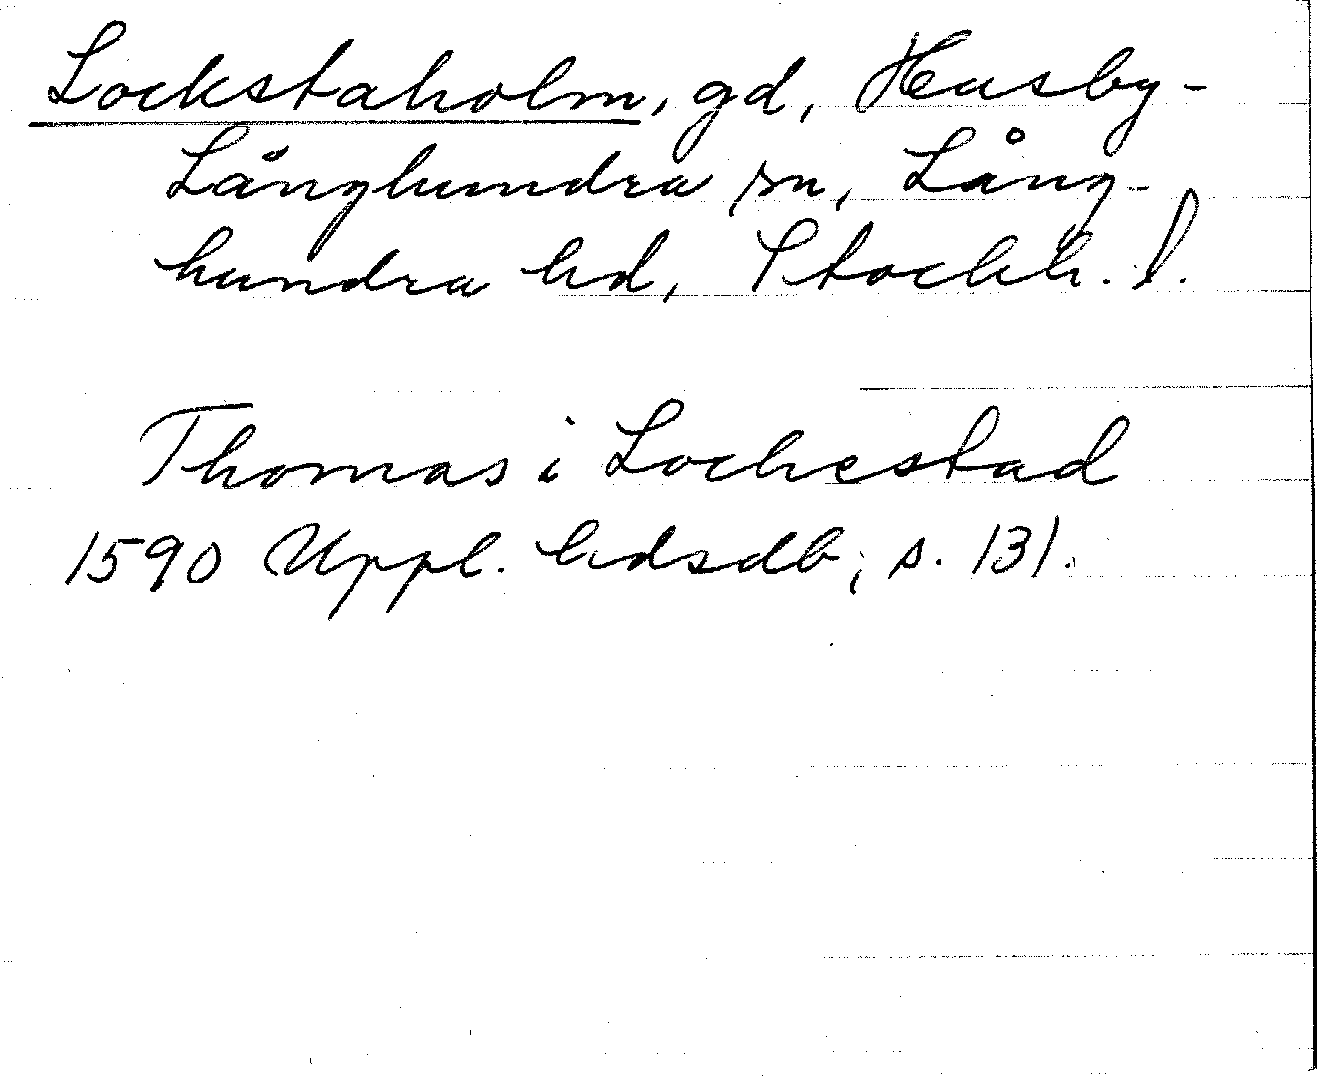 Lockstaholm, gd, Husby-
Långhundra sn, Lång-
hundra hd, Stockh. l.
Thomas i Lochestad
1590 Uppl. hdsdb, s. 131.